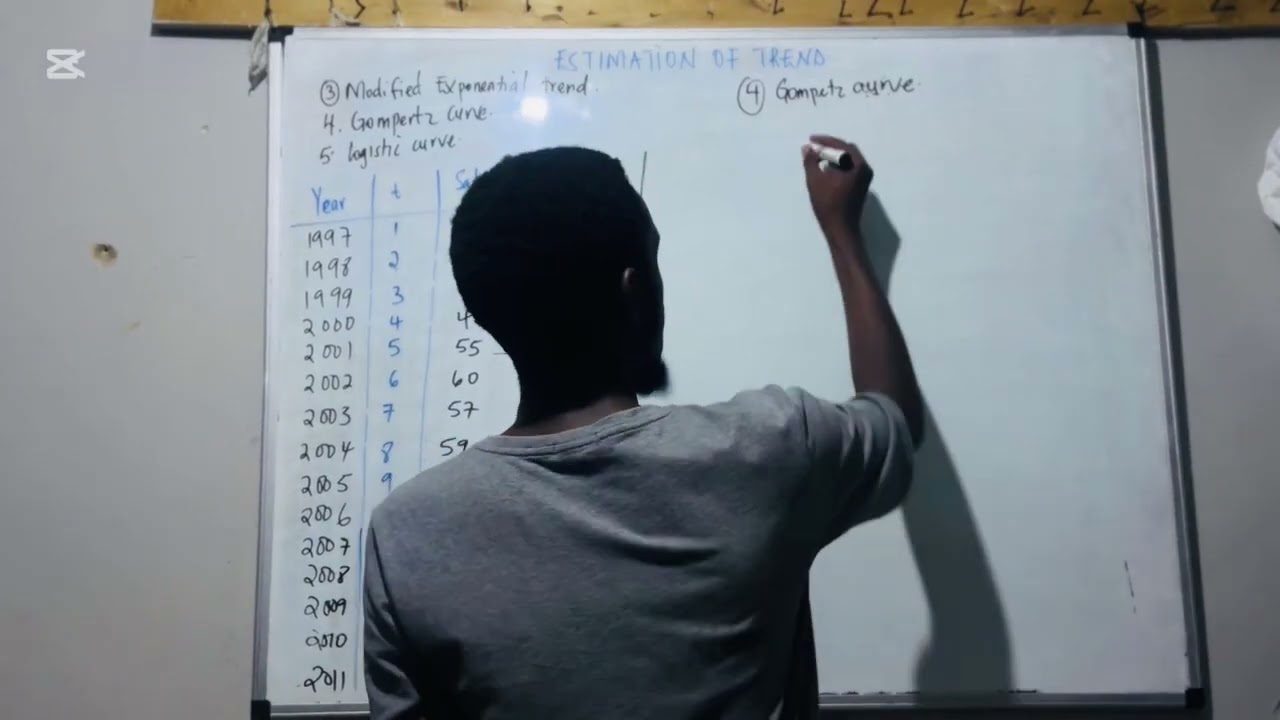 ESTIMATION OF TREND
③ Modified Exponential trend.
4. Gompertz Curve.
5. logistic curve.
④ Gompetz curve.
Year t
1997 1
1998 2
1999 3
2000 4
2001 5 55
2002 6 60
2003 7 57
2004 8 59
2005 9
2006
2007
2008
2009
2010
2011